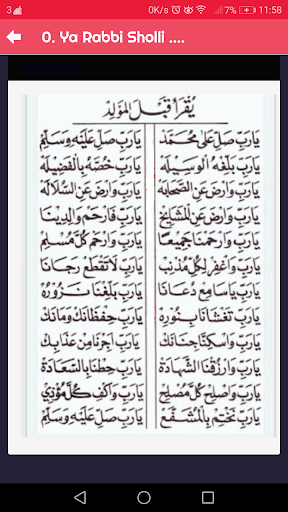 3 0K/s 7% 11:58
0. Ya Rabbi Sholli ....
يُقْرَأُ قَبْلَ الْمَوْلِدِ
يَارَبِّ صَلِّ عَلَى مُحَمَّدْ يَارَبِّ صَلِّ عَلَيْهِ وَسَلِّمْ
يَارَبِّ بَلِّغْهُ الْوَسِيْلَهْ يَارَبِّ خُصَّهُ بِالْفَضِيْلَهْ
يَارَبِّ وَارْضَ عَنِ الصَّحَابَهْ يَارَبِّ وَارْضَ عَنِ السُّلَالَهْ
يَارَبِّ وَارْضَ عَنِ الْمَشَايِخْ يَارَبِّ فَارْحَمْ وَالِدِيْنَا
يَارَبِّ وَارْحَمْنَا جَمِيْعًا يَارَبِّ وَارْحَمْ كُلَّ مُسْلِمْ
يَارَبِّ وَاغْفِرْ لِكُلِّ مُذْنِبْ يَارَبِّ لَا تَقْطَعْ رَجَانَا
يَارَبِّ يَاسَامِعْ دُعَانَا يَارَبِّ بَلِّغْنَا نَزُوْرُهْ
يَارَبِّ تَغْشَانَا بِنُوْرِهْ يَارَبِّ حِفْظَانَكْ وَاَمَانَكْ
يَارَبِّ وَاسْكِنَّا جِنَانَكْ يَارَبِّ اَجِرْنَا مِنْ عَذَابِكْ
يَارَبِّ وَارْزُقْنَا الشَّهَادَةْ يَارَبِّ حِطْنَا بِالسَّعَادَةْ
يَارَبِّ وَاصْلِحْ كُلَّ مُصْلِحْ يَارَبِّ وَاكْفِ كُلَّ مُؤْذِيْ
يَارَبِّ نَخْتِمْ بِالْمُشَفَّعْ يَارَبِّ صَلِّ عَلَيْهِ وَسَلِّمْ